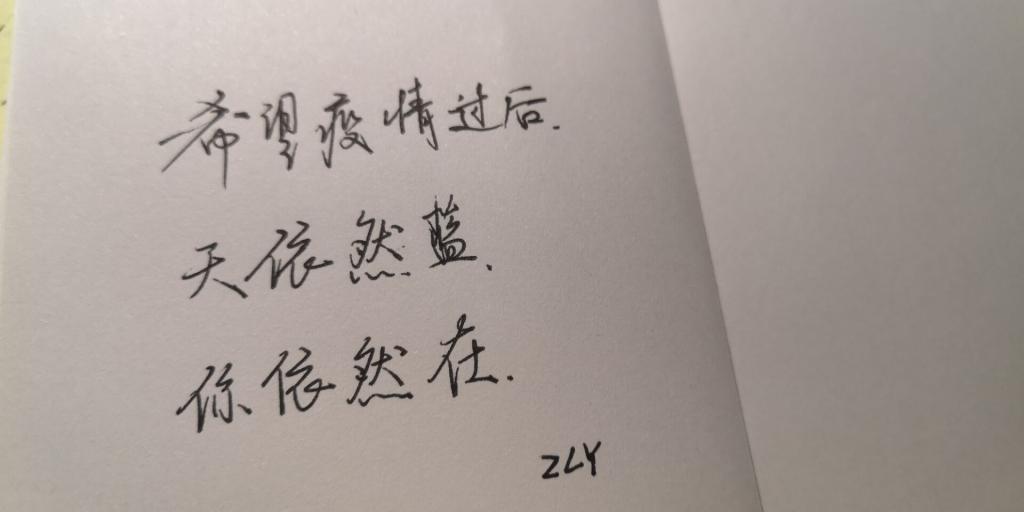 希望疫情过后.
天依然蓝.
你依然在.
ZLY